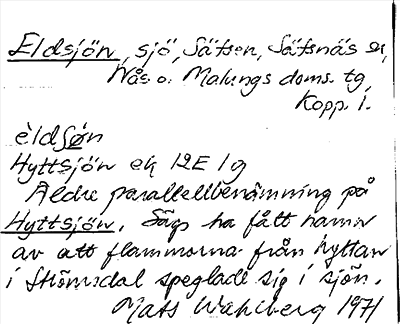 Eldsjön, sjö, Säfsen, Säfsnäs sn,
Nås o. Malungs doms. tg,
Kopp. l.
èldsøn
Hyttsjön ek 12E 1g
Äldre parallellbenämning på
Hyttsjön. Sägs ha fått namn
av att flammorna från hyttan
i Strömsdal speglade sig i sjön.
Mats Wahlberg 1971